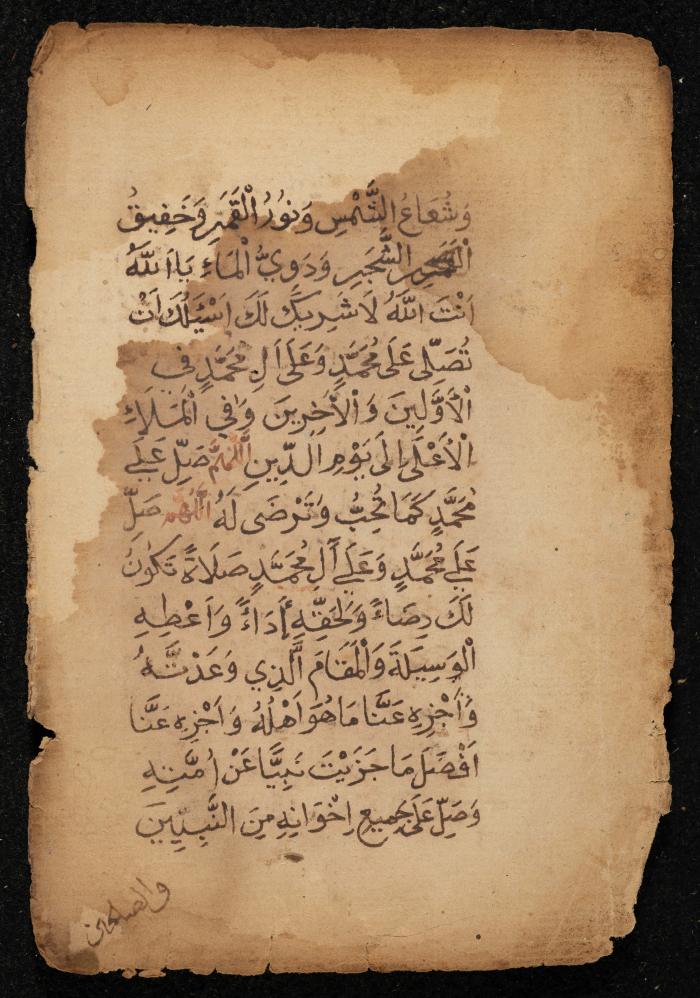 وَشُعَاعُ الشَّمْسِ وَنُورُ الْقَمَرِ وَخَفِيقُ
الشَّجَرِ وَدَوِيُّ الْمَاءِ يَا اَللّٰهُ
اَنْتَ اللّٰهُ لَا شَرِيكَ لَكَ اَسْئَلُكَ اَنْ
تُصَلِّى عَلَى مُحَمَّدٍ وَعَلَى اَلِ مُحَمَّدٍ فِي
الْأَوَّلِينَ وَالْأَخِرِينَ وَفِي الْمَلَاءِ
الْأَعْلَى اِلَى يَوْمِ الدِّينِ اَللّٰهُمَّ صَلِّ عَلَي
مُحَمَّدٍ كَمَا تُحِبُّ وَتَرْضَى لَهُ اَللّٰهُمَّ صَلِّ
عَلَي مُحَمَّدٍ وَعَلَي أَلِ مُحَمَّدٍ صَلَاةً تَكُونُ
لَكَ رِضَاءً وَلِحَقِّهِ أَدَاءً وَاَعْطِهِ
الْوَسِيلَةَ وَالْمَقَامَ الَّذِي وَعَدْتَّهُ
وَأَجْزِهِ عَنَّا مَا هُوَ اَهْلُهُ وَاَجْزِهِ عَنَّا
اَفْضَلَ مَا جَزَيْتَ نَبِيًّا عَنْ اُمَّتِهِ
وَصَلِّ عَلَى جَمِيعِ اِخْوَانِهِ مِنَ النَّبِيِّينَ
والصالحين